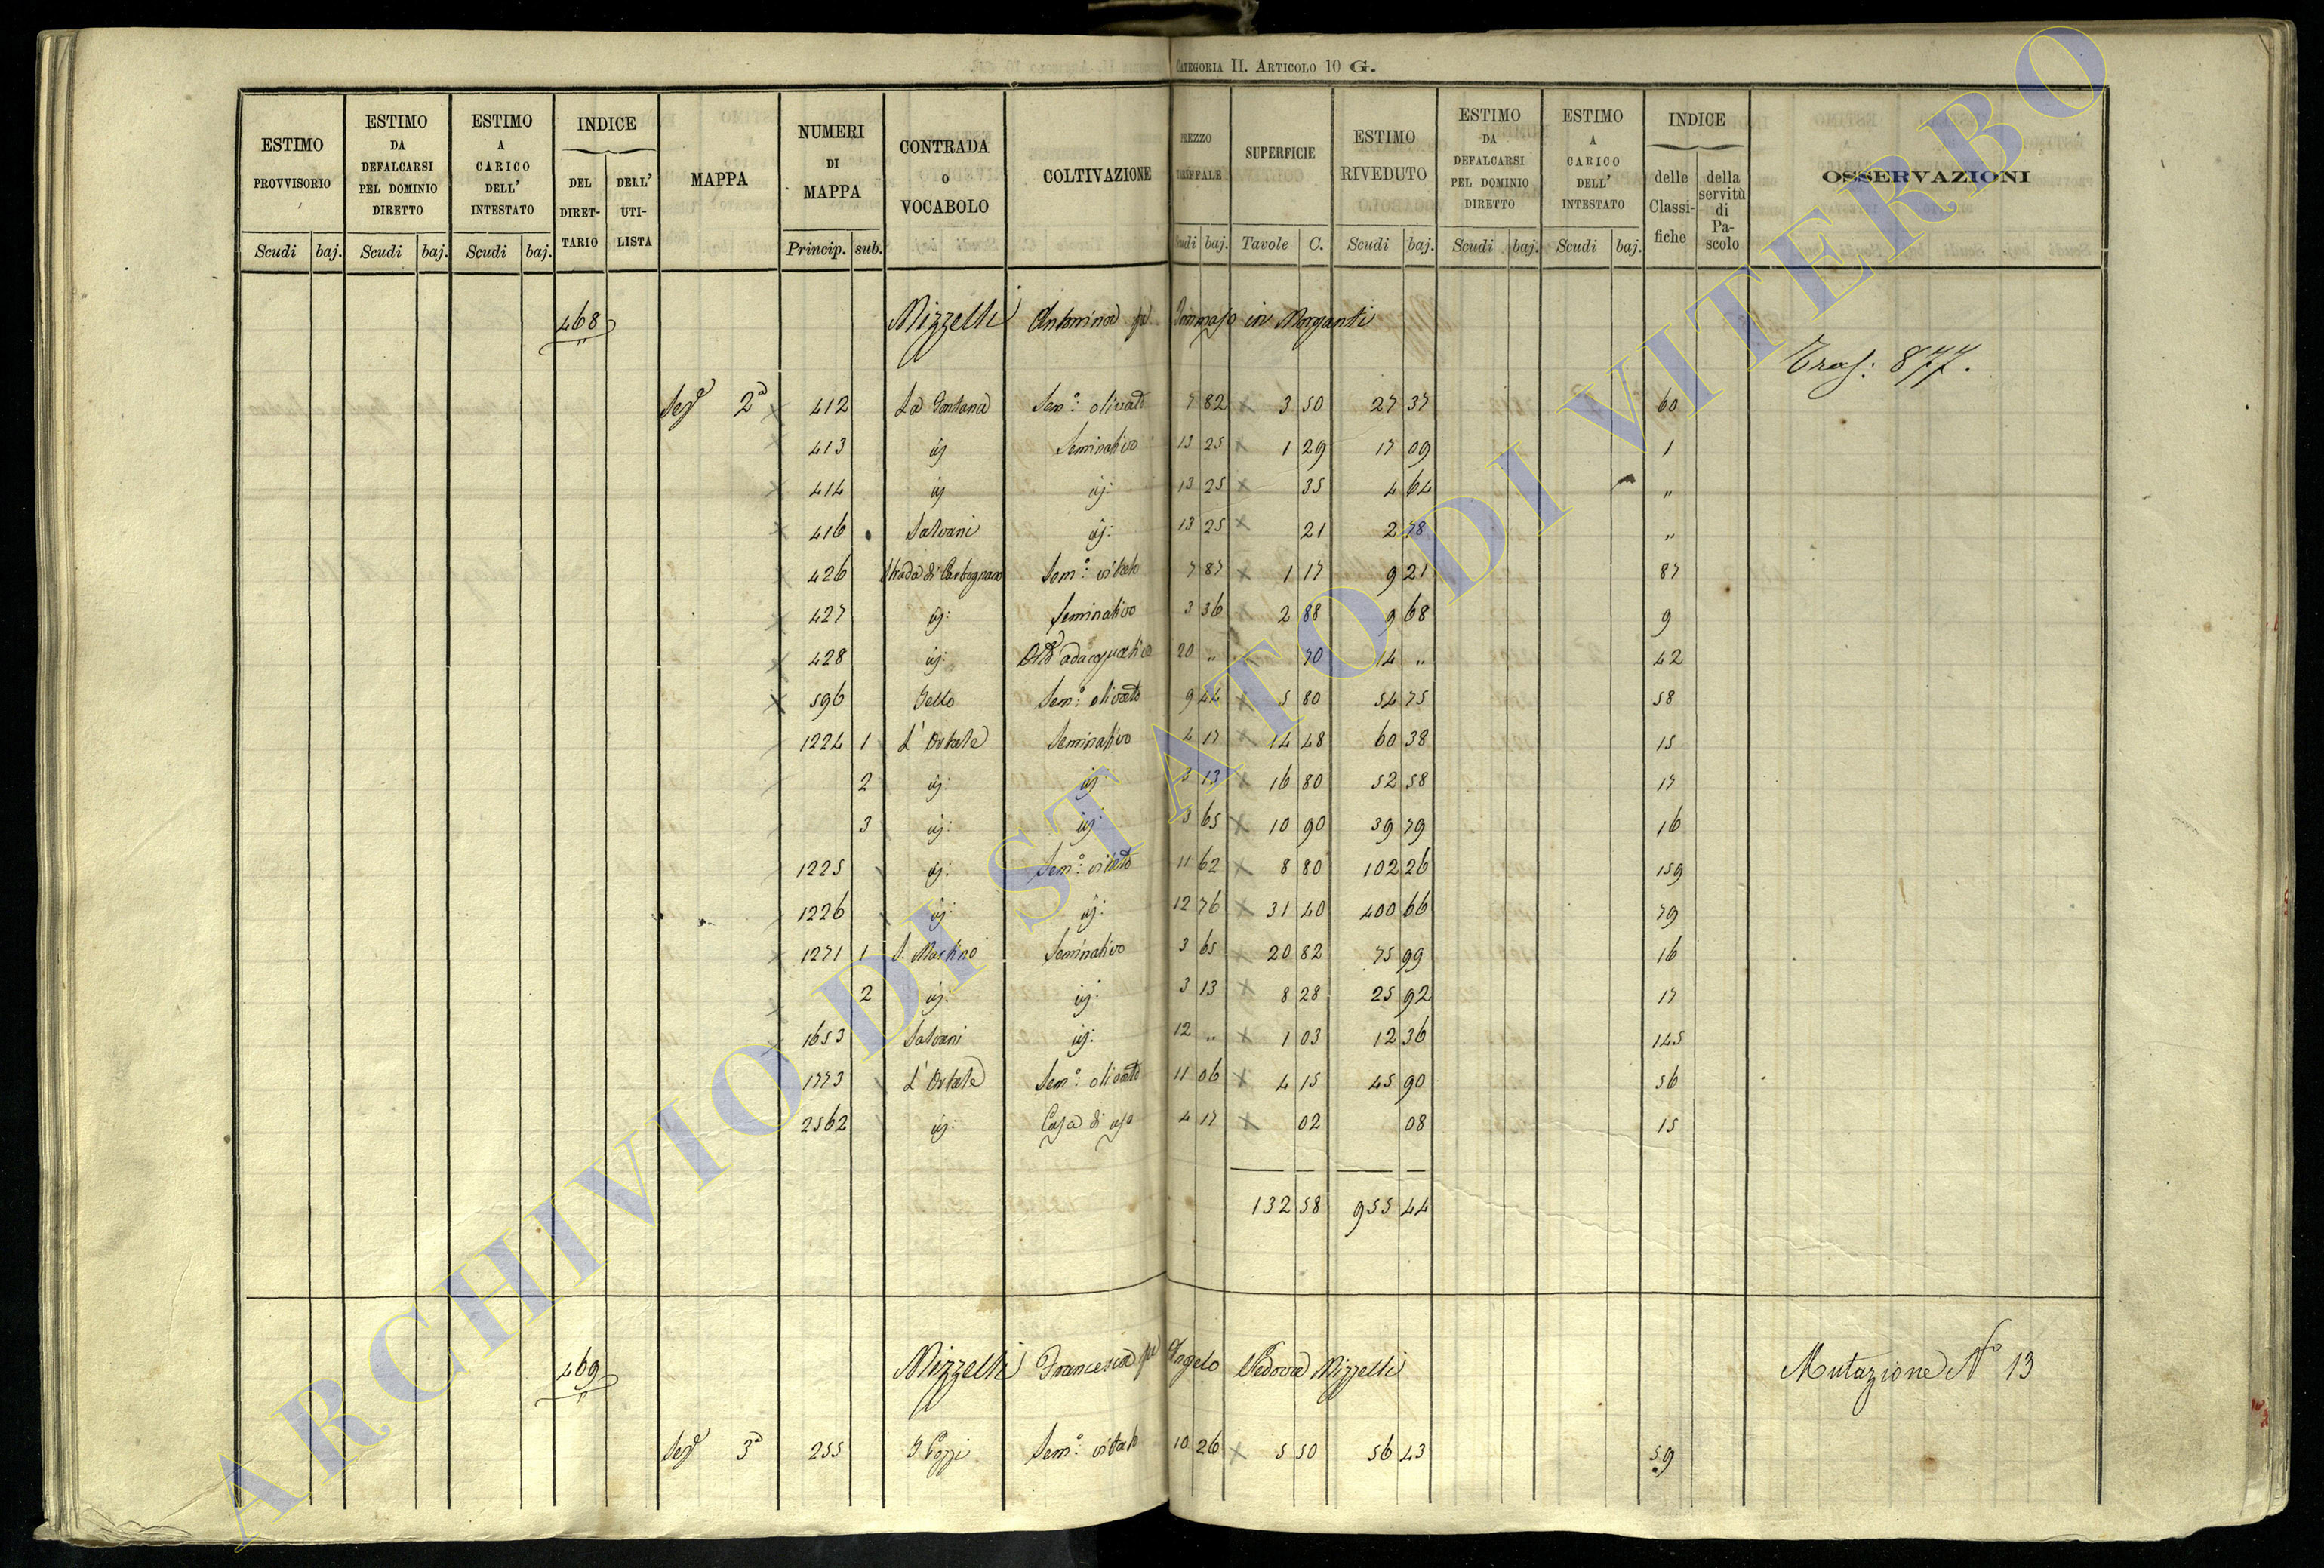 CATEGORIA II. ARTICOLO 10 G.
ESTIMO PROVVISORIO Scudi baj.
ESTIMO DA DEFALCARSI PEL DOMINIO DIRETTO Scudi baj.
ESTIMO A CARICO DELL' INTESTATO Scudi baj.
INDICE DEL DIRET-TARIO DELL' UTI-LISTA
MAPPA
NUMERI DI MAPPA Princip. sub.
CONTRADA O VOCABOLO
COLTIVAZIONE
REZZO RIFFALE udi baj.
SUPERFICIE Tavole C.
ESTIMO RIVEDUTO Scudi baj.
ESTIMO DA DEFALCARSI PEL DOMINIO DIRETTO Scudi baj.
ESTIMO A CARICO DELL' INTESTATO Scudi baj.
INDICE delle Classi-fiche della servitù di Pa-scolo
OSSERVAZIONI
468 Mizzelli Antonina Tommaso in Morganti
Tras: 877.
Sez 2a 412 La Fontana Sem.o: olivato 7 82 3 50 27 37 60
413 id Seminativo 13 25 1 29 17 09 1
414 id id: 13 25 35 4 64 "
416 Salvani id: 13 25 21 2 78 "
426 Strada di Carbognano Sem.o: vitato 7 87 1 17 9 21 87
427 id: Seminativo 3 36 2 88 9 68 9
428 id: Orto adacquativo 20 " 70 14 " 42
596 Sem.o: olivato 9 44 5 80 54 75 58
1224 1 L' Ortale Seminativo 4 17 14 48 60 38 15
2 id: id: 3 13 16 80 52 58 17
3 id: id: 3 65 10 90 39 79 16
1225 id: Sem.o: vitato 11 62 8 80 102 26 159
1226 id: id: 12 76 31 40 400 66 79
1271 1 S. Martino Seminativo 3 65 20 82 75 99 16
2 id: id: 3 13 8 28 25 92 17
1653 Salvani id: 12 " 1 03 12 36 145
1773 L' Ortale Sem.o: olivato 11 06 4 15 45 90 56
2562 id: Casa di uso 4 17 02 08 15
132 58 955 44
469 Mizzelli Francesca Angelo Vedova Mizzelli Mutazione No 13
Sez 3a 255 I Pozzi Sem.o: vitato 10 26 5 50 56 43 59
ARCHIVIO DI STATO DI VITERBO